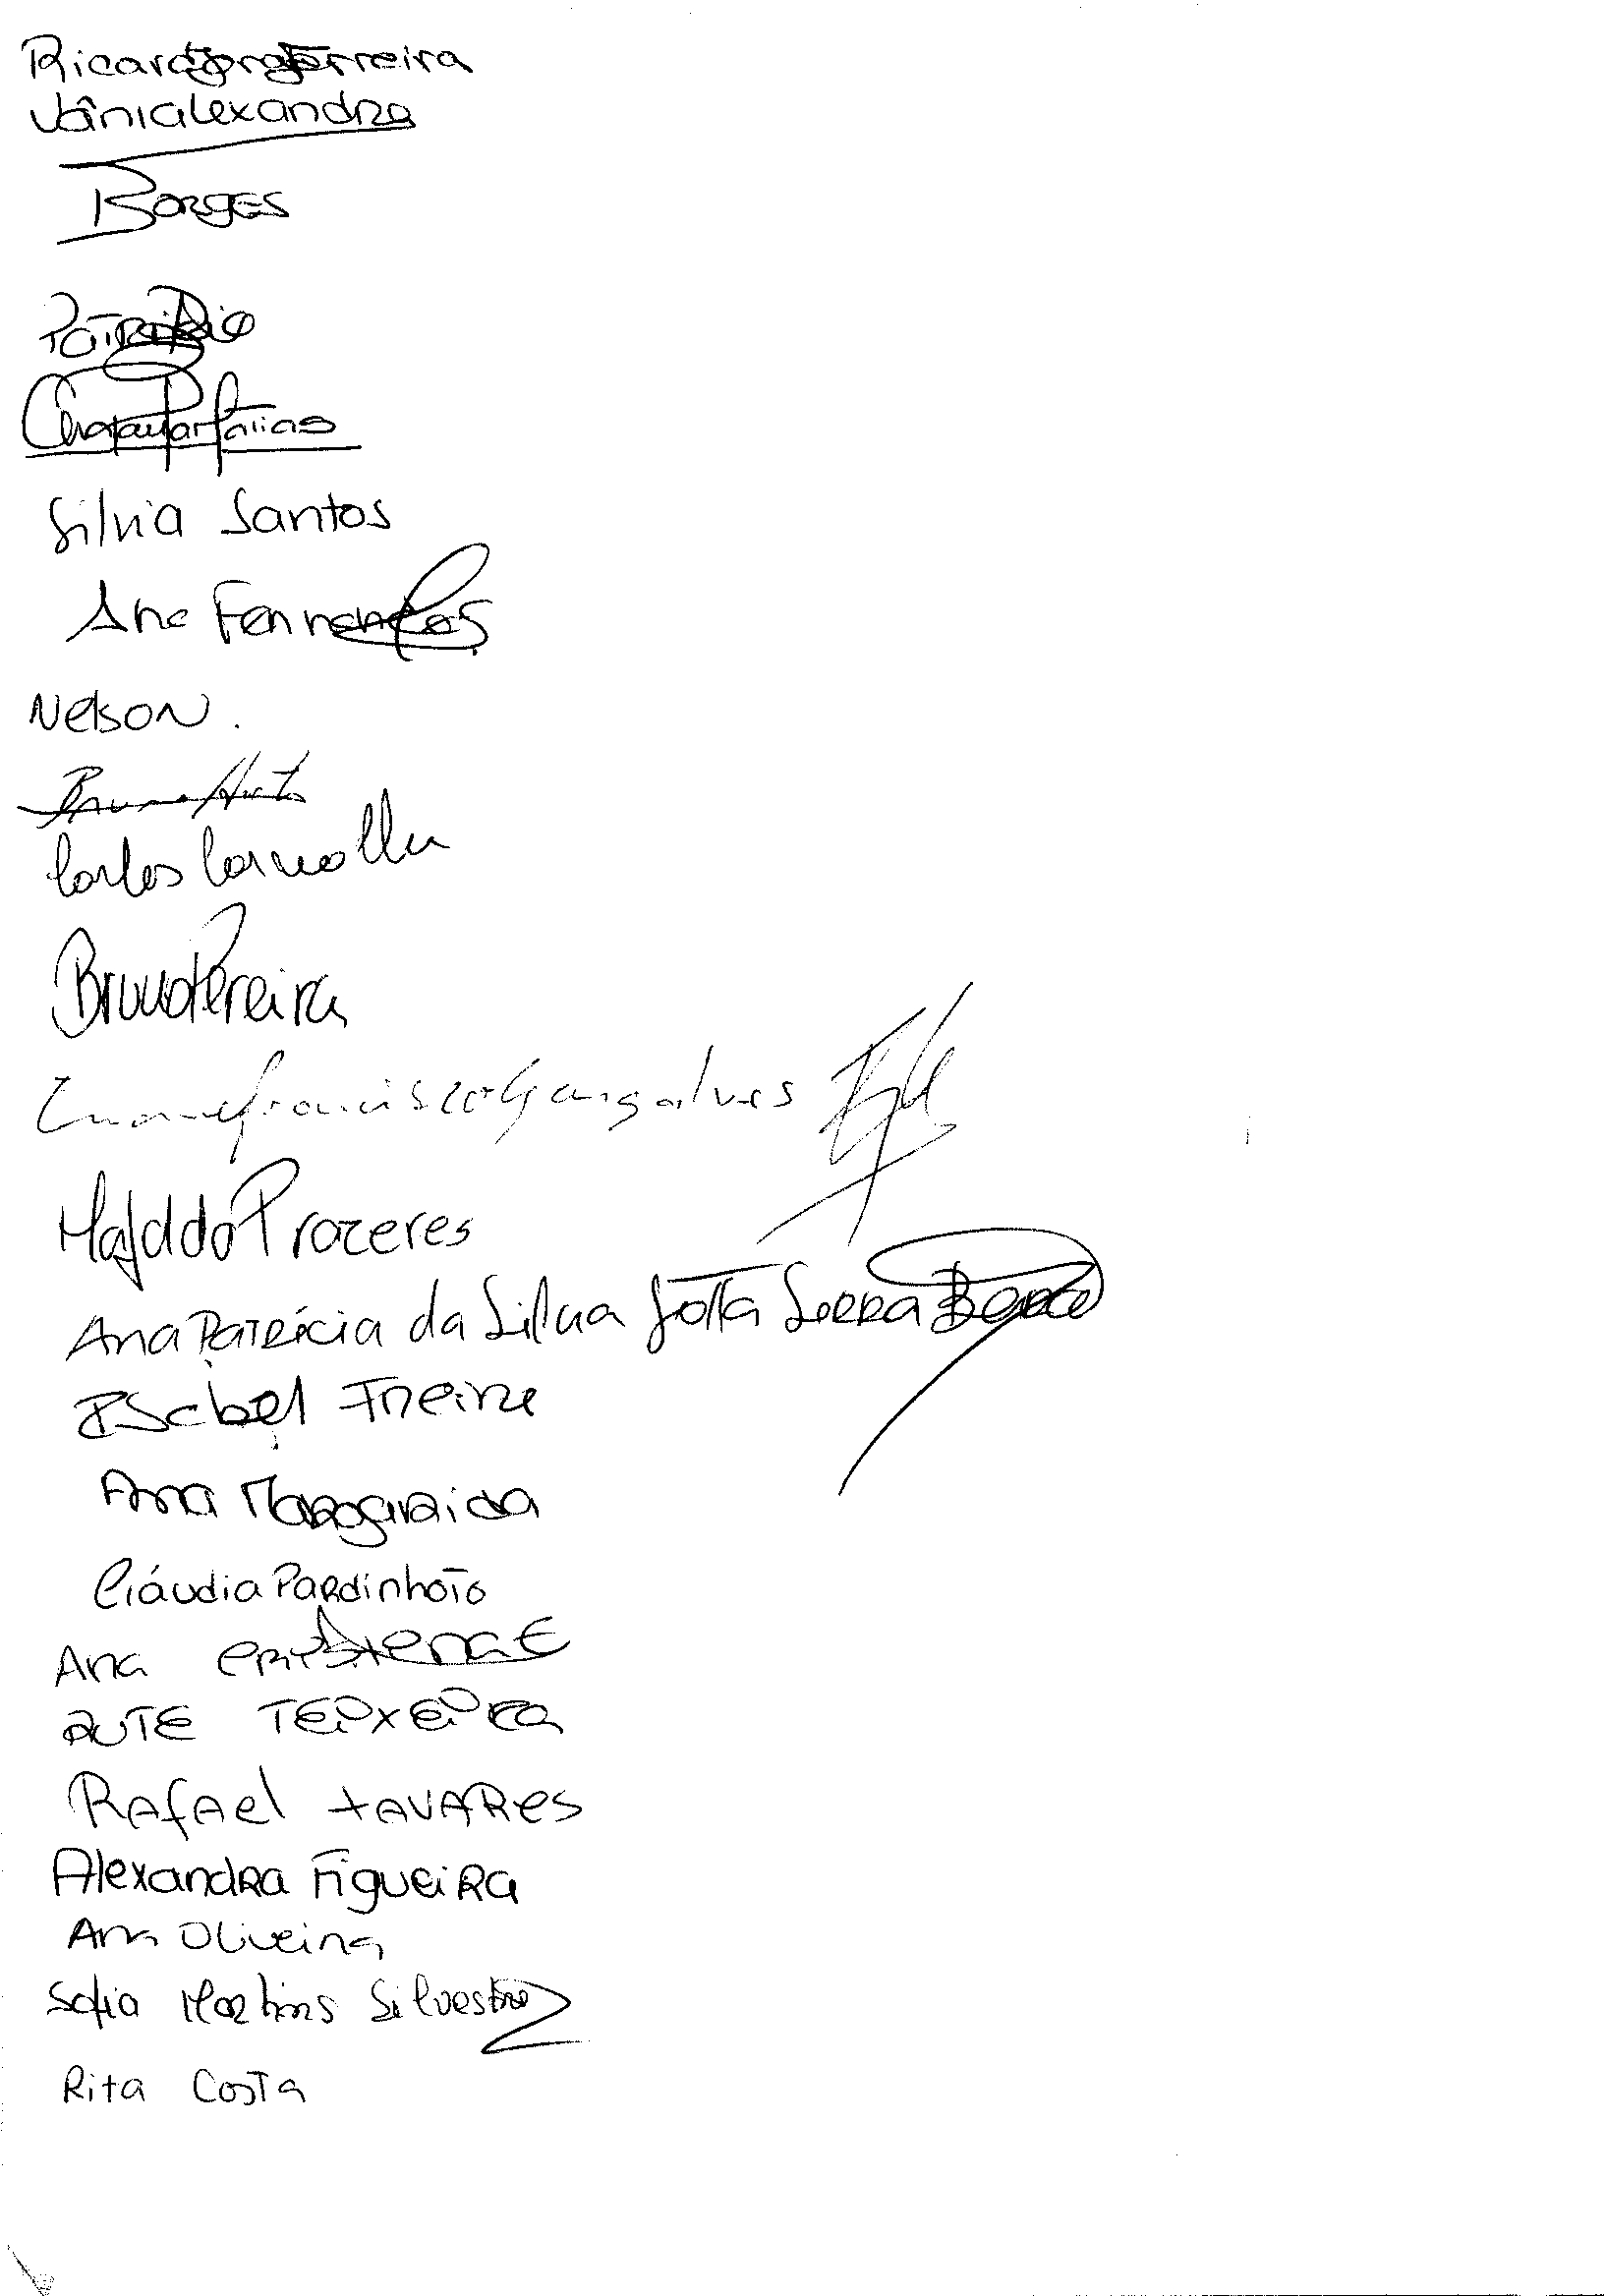 Ricardo Jorge Ferreira
Vânialexandra
Borges
Patrício
Silvia Santos
Ana Fernandes
Nelson.
Bruno
Carlos Carvalho
Bruno Pereira
Francisco Gonçalves
Mafalda Prazeres
Ana Patrícia da Silva Serra
Isabel Freire
Ana Margarida
Cláudia Pardinhoto
Ana
RUTE TEIXEIRA
RAfAel tAVARes
AlexandRa FigueiRa
Ana Oliveira
Sofia Martins Silvestre
Rita Costa